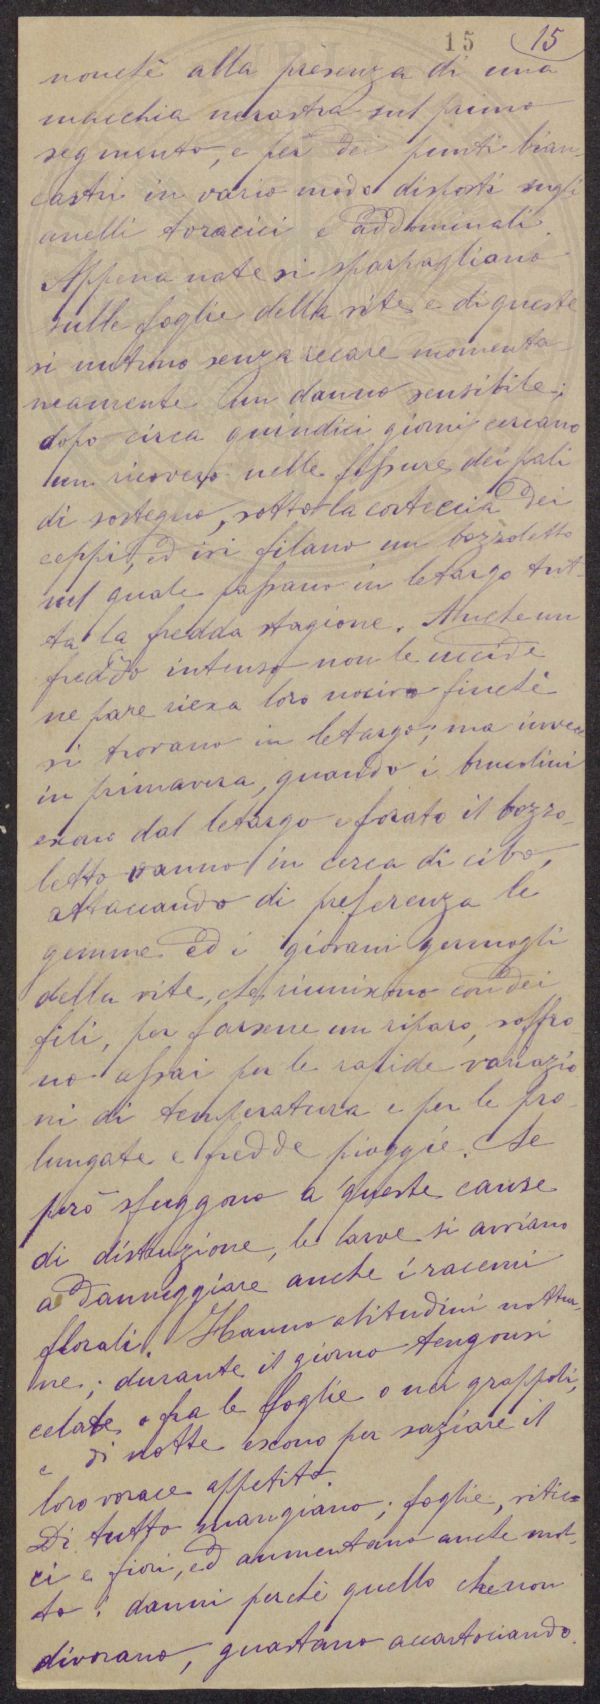 15 15
nonchè alla presenza di una
macchia nerastra sul primo
segmento, e per dei punti bian-
castri in vario modo disposti sugli
anelli toracici e addominali.
Appena nate si sparpagliano
sulle foglie della vite e di queste
si nutrono senza recare momenta-
neamente un danno sensibile;
dopo circa quindici giorni cercano
un ricovero nelle fessure dei pali
di sostegno, sotto la corteccia dei
ceppi, ed ivi filano un bozzoletto
nel quale passano in letargo tut-
ta la fredda stagione. Anche un
freddo intenso non le uccide
ne pare riesca loro nocivo finchè
si trovano in letargo; ma invece
in primavera, quando i bruchini
escono dal letargo e forato il bozzo-
letto vanno in cerca di cibo,
attaccando di preferenza le
gemme ed i giovani germogli
della vite, che riuniscono con dei
fili, per farsene un riparo, soffro-
no assai per le rapide variazio
ni di temperatura e per le pro-
lungate e fredde pioggie. Se
però sfuggono a queste cause
di distruzione, le larve si avviano
a danneggiare anche i racemi
florali. Hanno abitudini nottur-
ne; durante il giorno tengonsi
celate o fra le foglie o nei grappoli,
e di notte escono per saziare il
loro vorace appetito.
Di tutto mangiano; foglie, vitic-
ci e fiori, ed aumentano anche mol-
to i danni perchè quello che non
divorano, guastano accartociando.